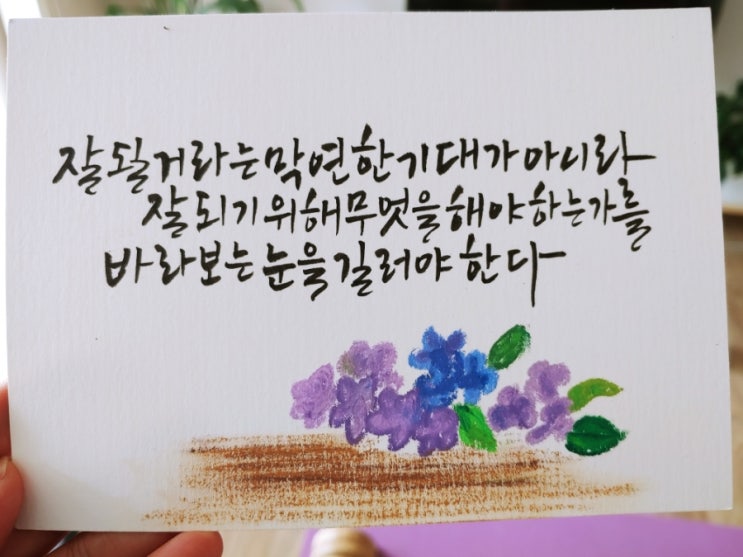 잘 될거라는 막연한 기대가 아니라
잘 되기 위해 무엇을 해야 하는가를
바라보는 눈을 길러야 한다